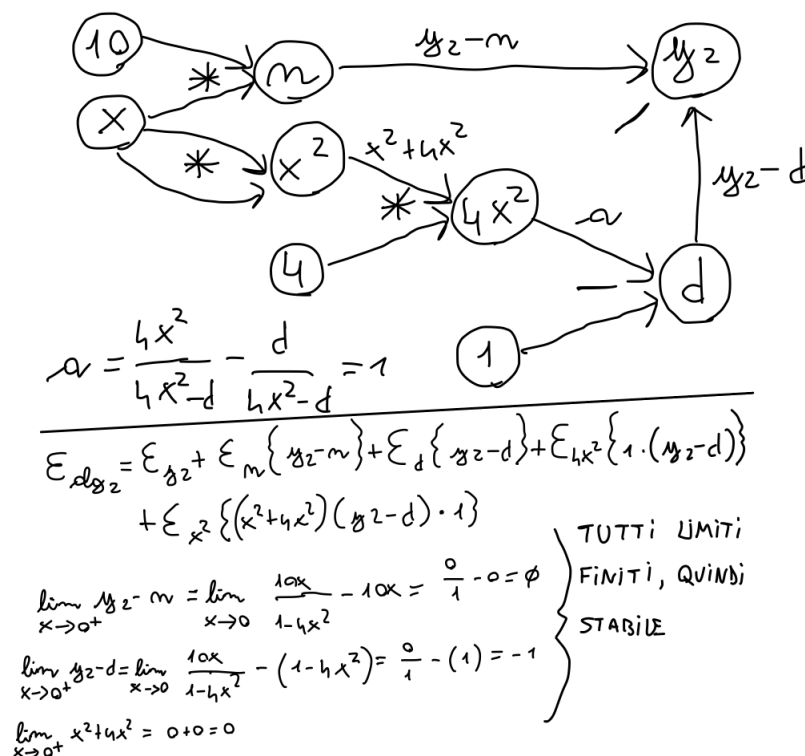 10
y₂-n
n
y₂
*
x
*
x²
x²+4x²
*
4x²
a
y₂-d
4
−
d
1
a = 4x²/(4x²-d) - d/(4x²-d) = 1
ε_alg₂ = ε_y₂ + ε_n{y₂-n} + ε_d{y₂-d} + ε_4x²{1·(y₂-d)}
+ ε_x²{(x²+4x²)(y₂-d)·1}
lim x→0⁺ y₂-n = lim x→0 10x/(1-4x²) - 10x = 0/1 - 0 = ø
lim x→0⁺ y₂-d = lim x→0 10x/(1-4x²) - (1-4x²) = 0/1 - (1) = -1
lim x→0⁺ x²+4x² = 0+0=0
TUTTI LIMITI
FINITI, QUINDI
STABILE